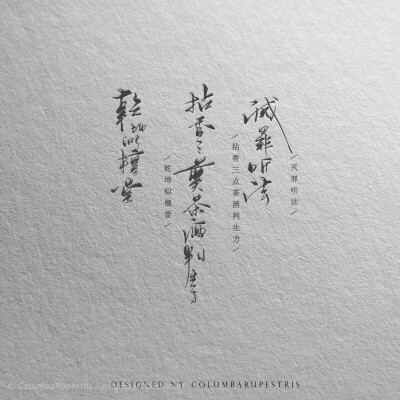 滅罪听法
/灭罪听法/
拈香三奠茶酒判生方
/拈香三点茶酒判生方/
乾坤似檀
/乾坤似檀/
DESIGNED NY COLUMBARUPESTRIS
© ColumbaRupestris